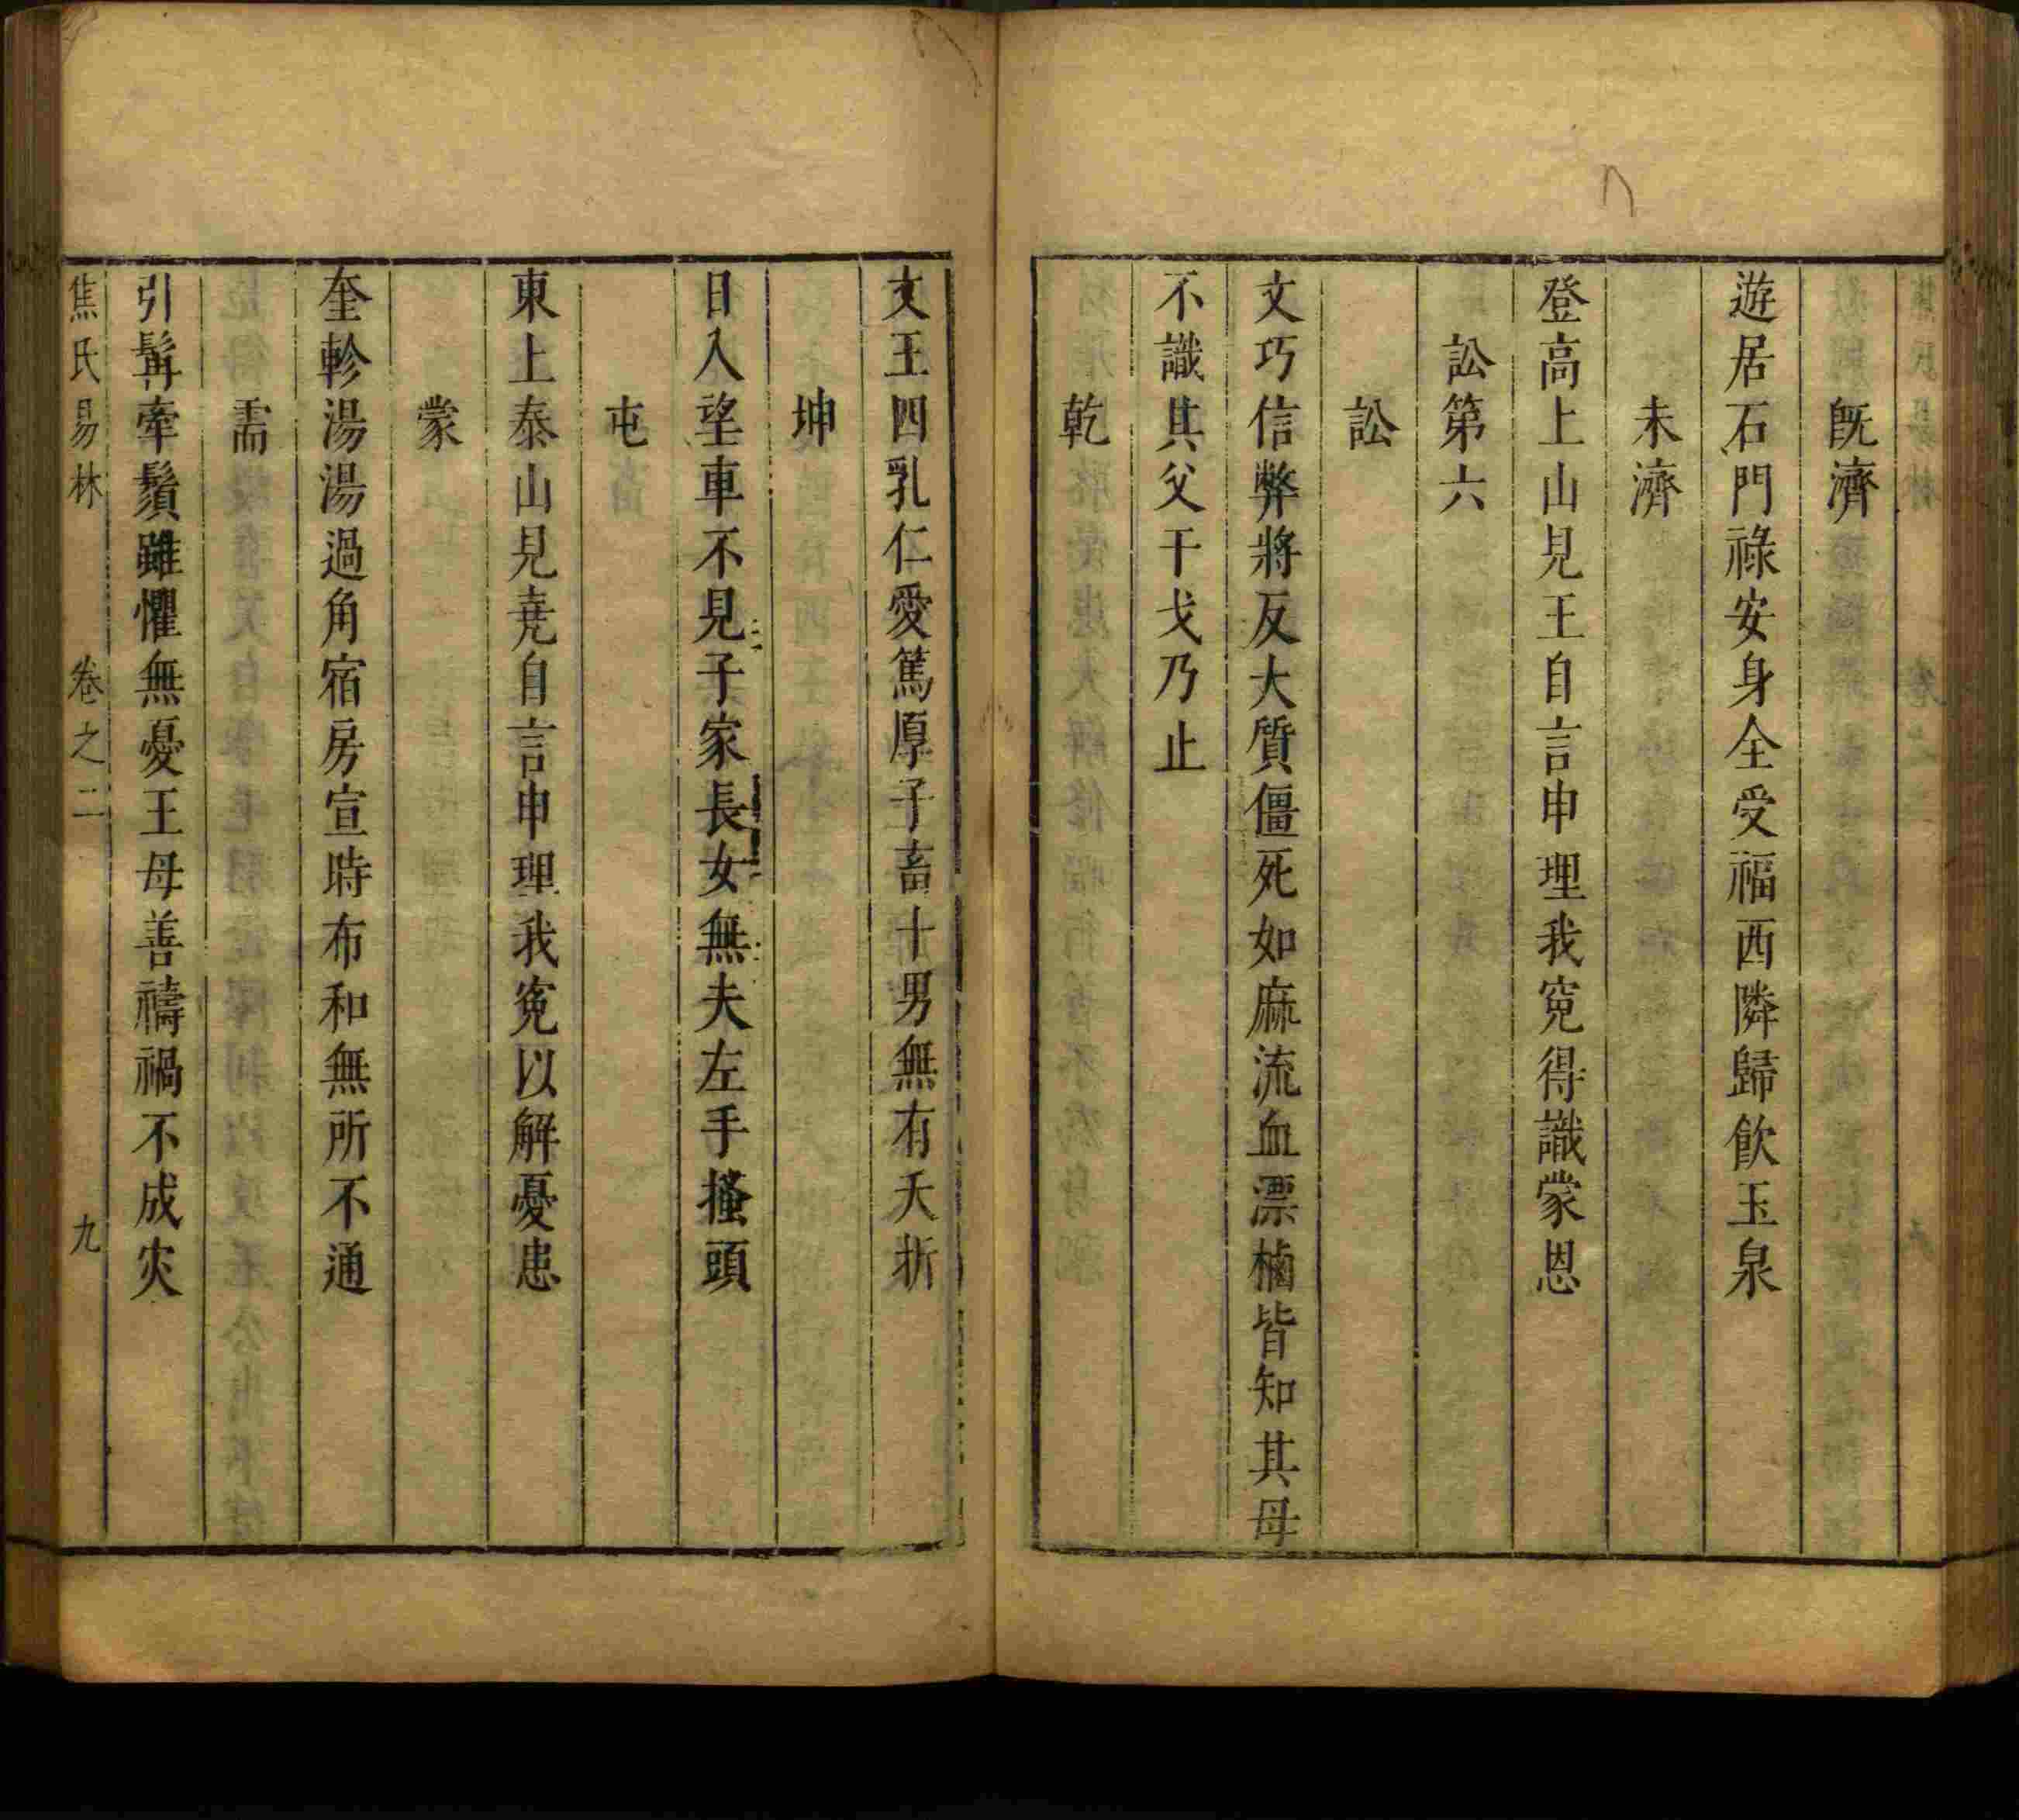 既濟
遊居石門祿安身全受福西隣歸飲玉泉
未濟
登高上山見王自言申理我寃得識蒙恩
訟第六
訟
文巧信弊將反大質僵死如麻流血漂櫓皆知其母
不識其父干戈乃止
乾
文王四乳仁愛篤厚子畜十男無有夭折
坤
日入望車不見子家長女無夫左手搔頭
屯
東上泰山見堯自言申理我寃以解憂患
蒙
奎軫湯湯過角宿房宣時布和無所不通
需
引髯牽鬚雖懼無憂王母善禱禍不成灾
焦氏易林 卷之二 九